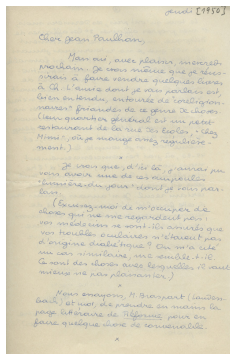 jeudi [1950]
Cher Jean Paulhan,
Mais oui, avec plaisir, mercredi
prochain. Je vous
à faire vendre quelques livres,
à La dont je vous parlais est,
bien entendu, entourée de
friandes de ce genre de choses.
(Leur quartier général est un petit
restaurant de la rue des Écoles, "chez
où je mange assez régulière-
ment.)
*
Je vois que, d'ici là, j'aurai pu
vous avoir une de ces
dont je vous par-
lais.
(Excusez-moi de m'occuper de
choses qui ne me regardent pas:
vos médecins se sont-ils assurés que
vos troubles oculaires n'étaient pas
d'origine diabétique? On m'a cité
un cas similaire, me semble-t-il.
Ce sont des choses avec lesquelles il vaut
mieux ne pas plaisanter.)
*
Nous essayons, M.
et moi, de prendre en mains la
page littéraire de Réforme pour en
faire quelque chose de convenable.
*